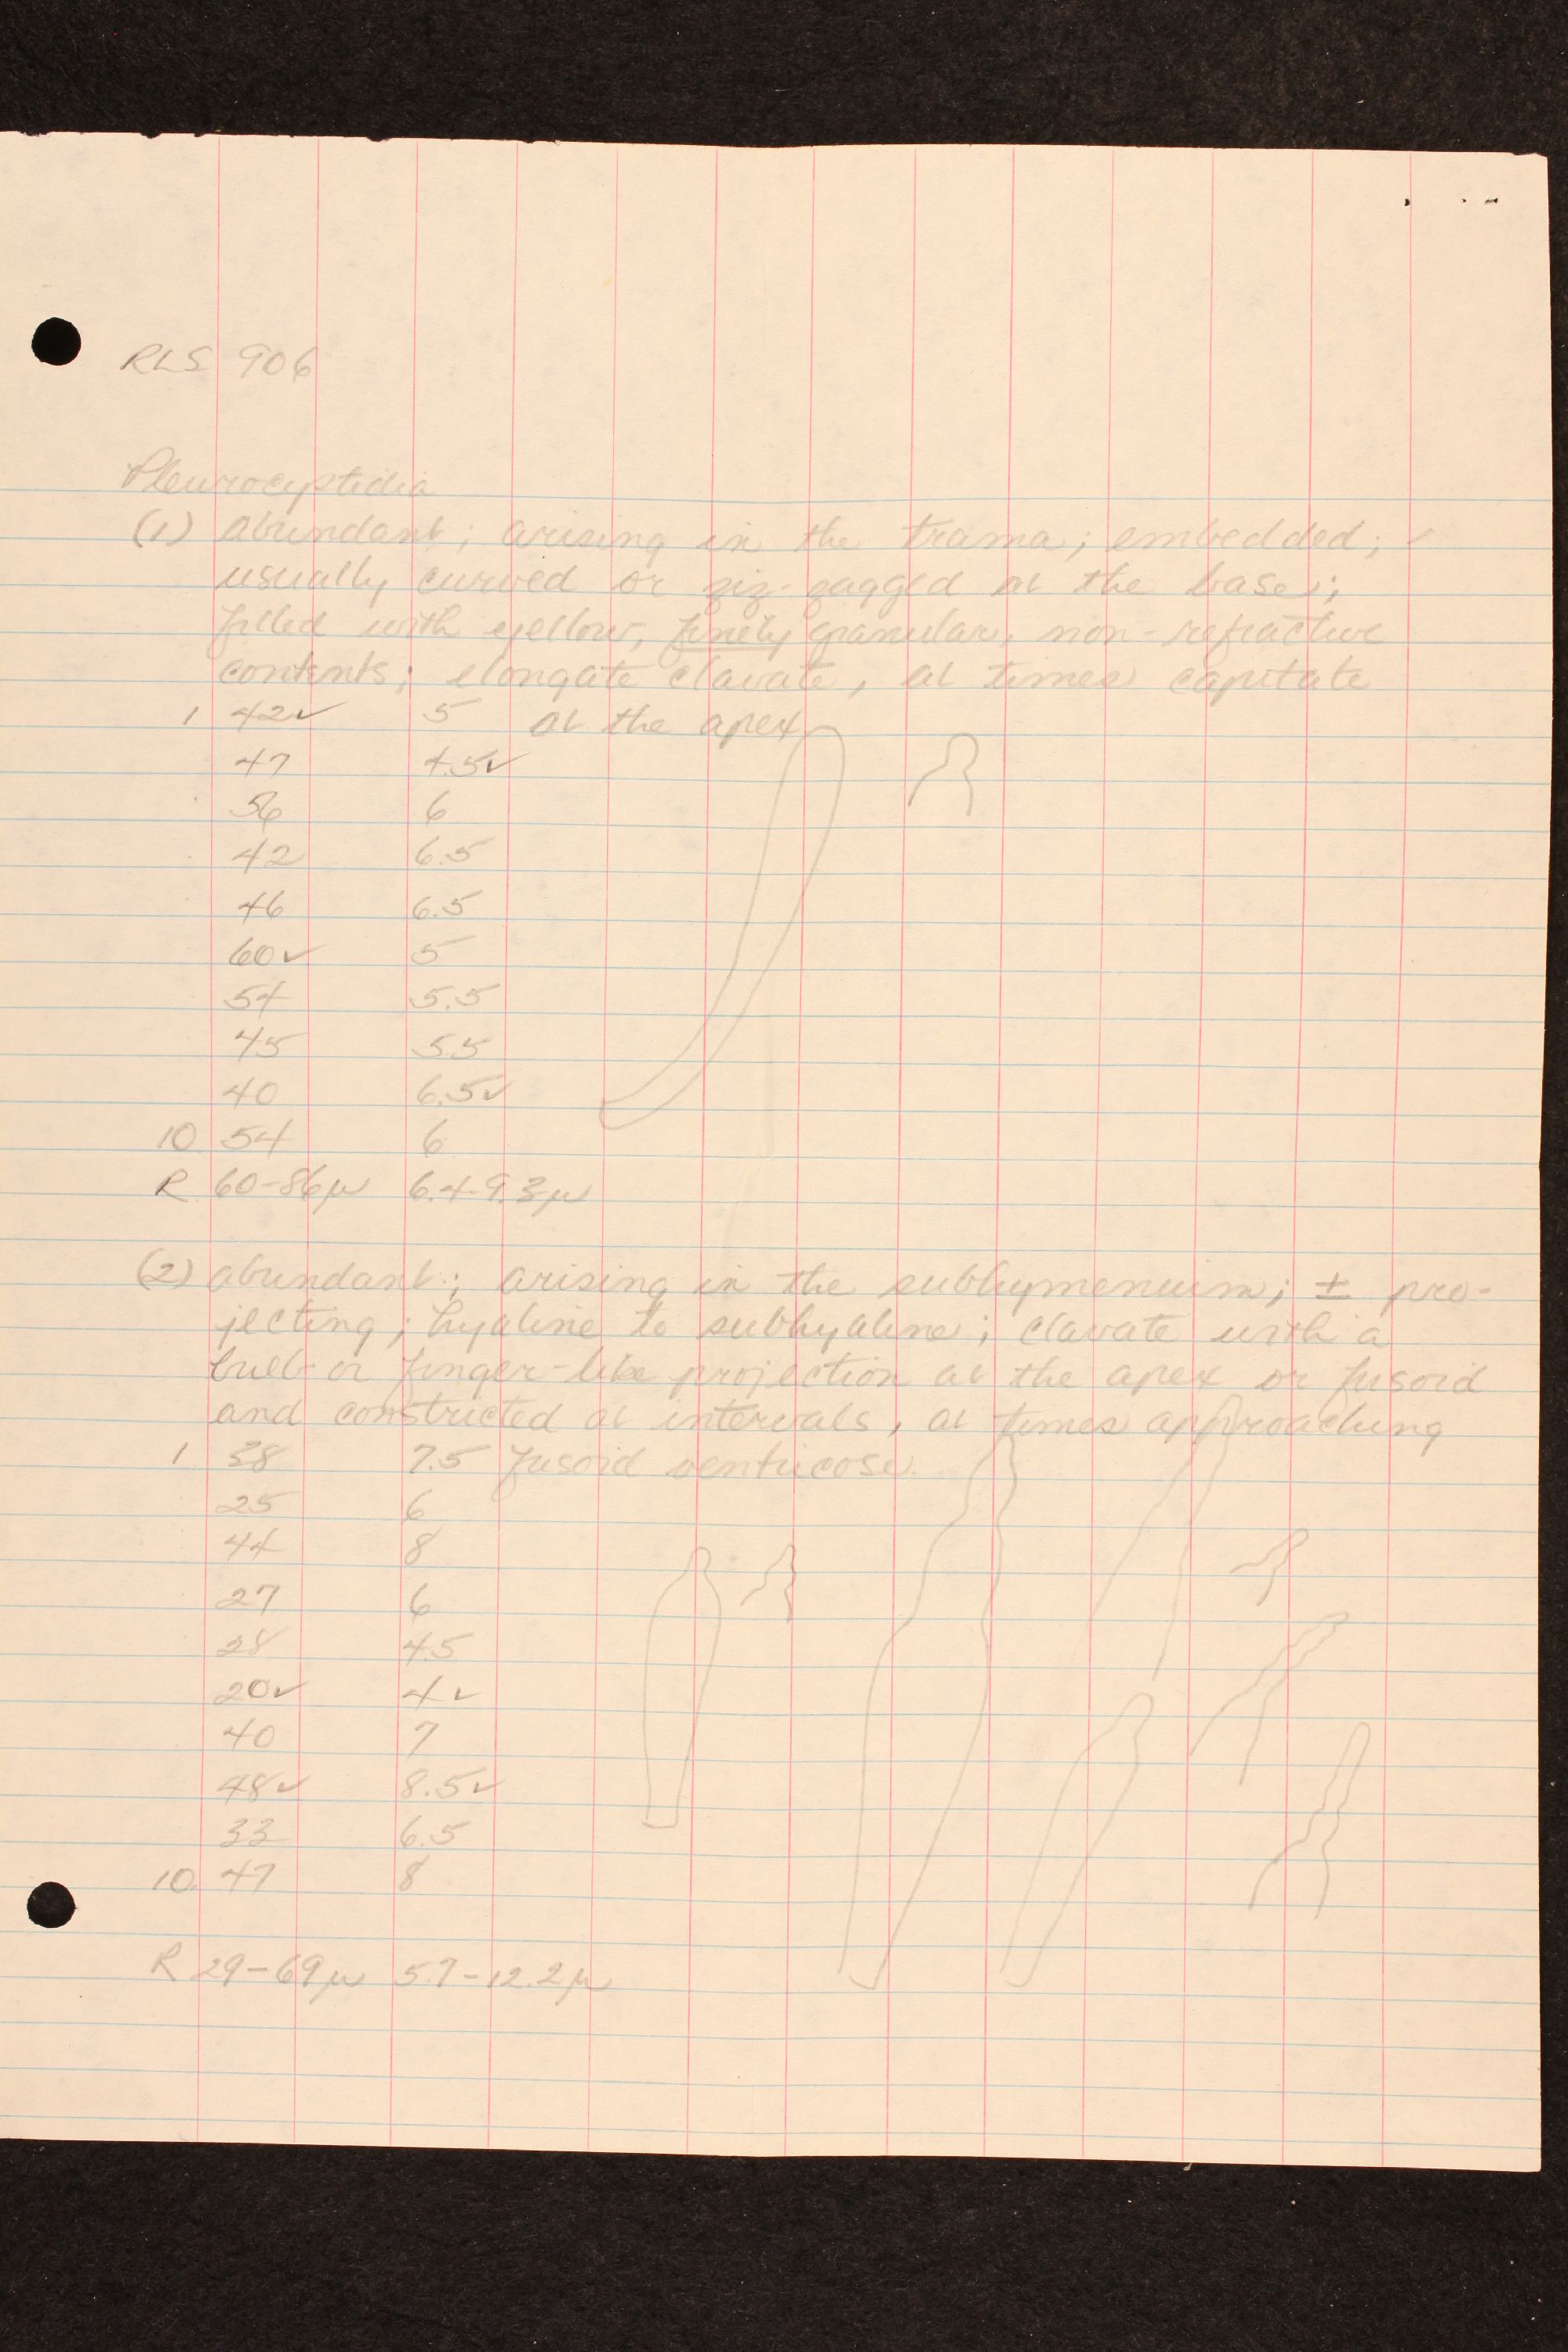 RLS 906
Pleurocystidia
(1) abundant; arising in the trama; embedded; ✓
usually curved or ziz-zagged at the base;
filled with yellow, finely granular, non-refractive
contents; elongate clavate, at times capitate
1 42✓ 5 at the apex
47 4.5✓
56 6
42 6.5
46 6.5
60✓ 5
54 5.5
45 5.5
40 6.5✓
10 54 6
R 60-86µ 6.4-9.3µ
(2) abundant; arising in the subhymenium; ± pro-
jecting; hyaline to subhyaline; clavate with a
bulb or finger-like projection at the apex or fusoid
and constricted at intervals, at times approaching
1 38 7.5 fusoid ventricose.
25 6
44 8
27 6
28 4.5
20✓ 4✓
40 7
48✓ 8.5✓
33 6.5
10 47 8
R 29-69µ 5.7-12.2µ